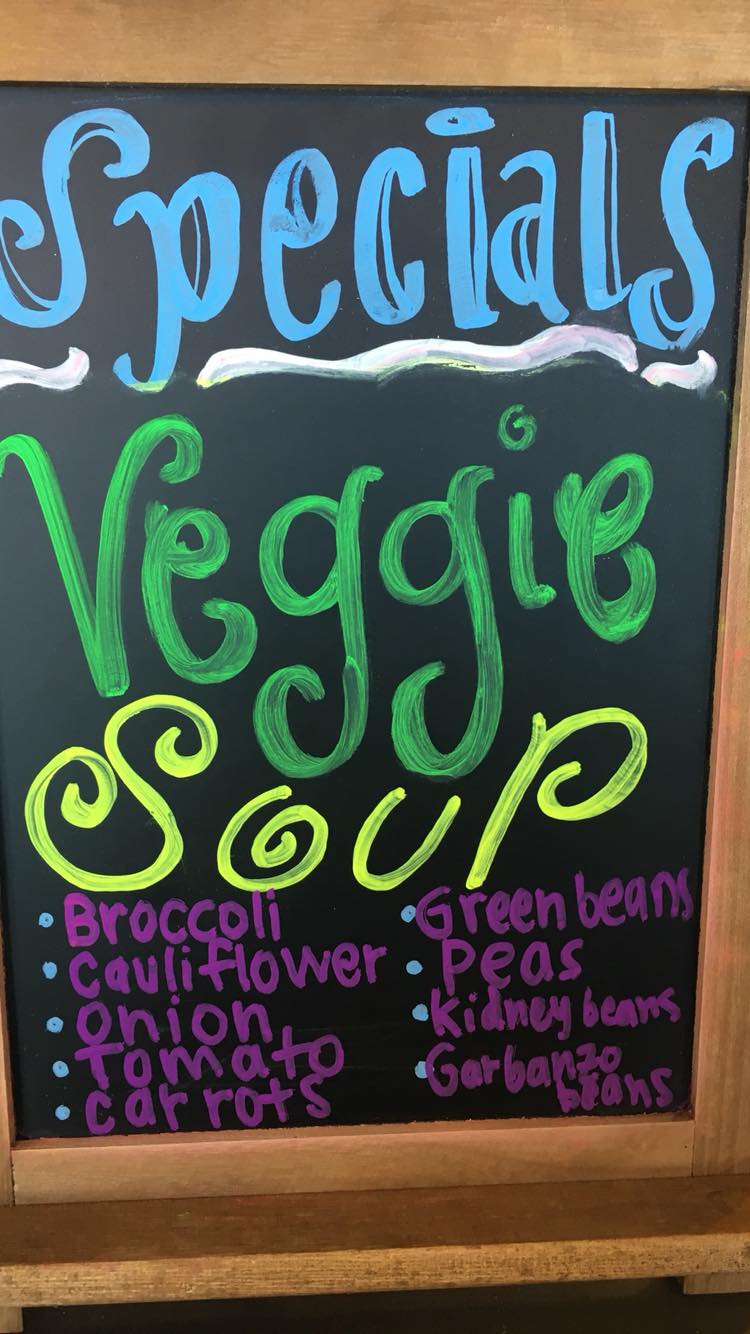 Specials
Veggie
Soup
• Broccoli
• Cauliflower
• Onion
• Tomato
• Carrots
• Green beans
• Peas
• Kidney beans
• Garbanzo
beans